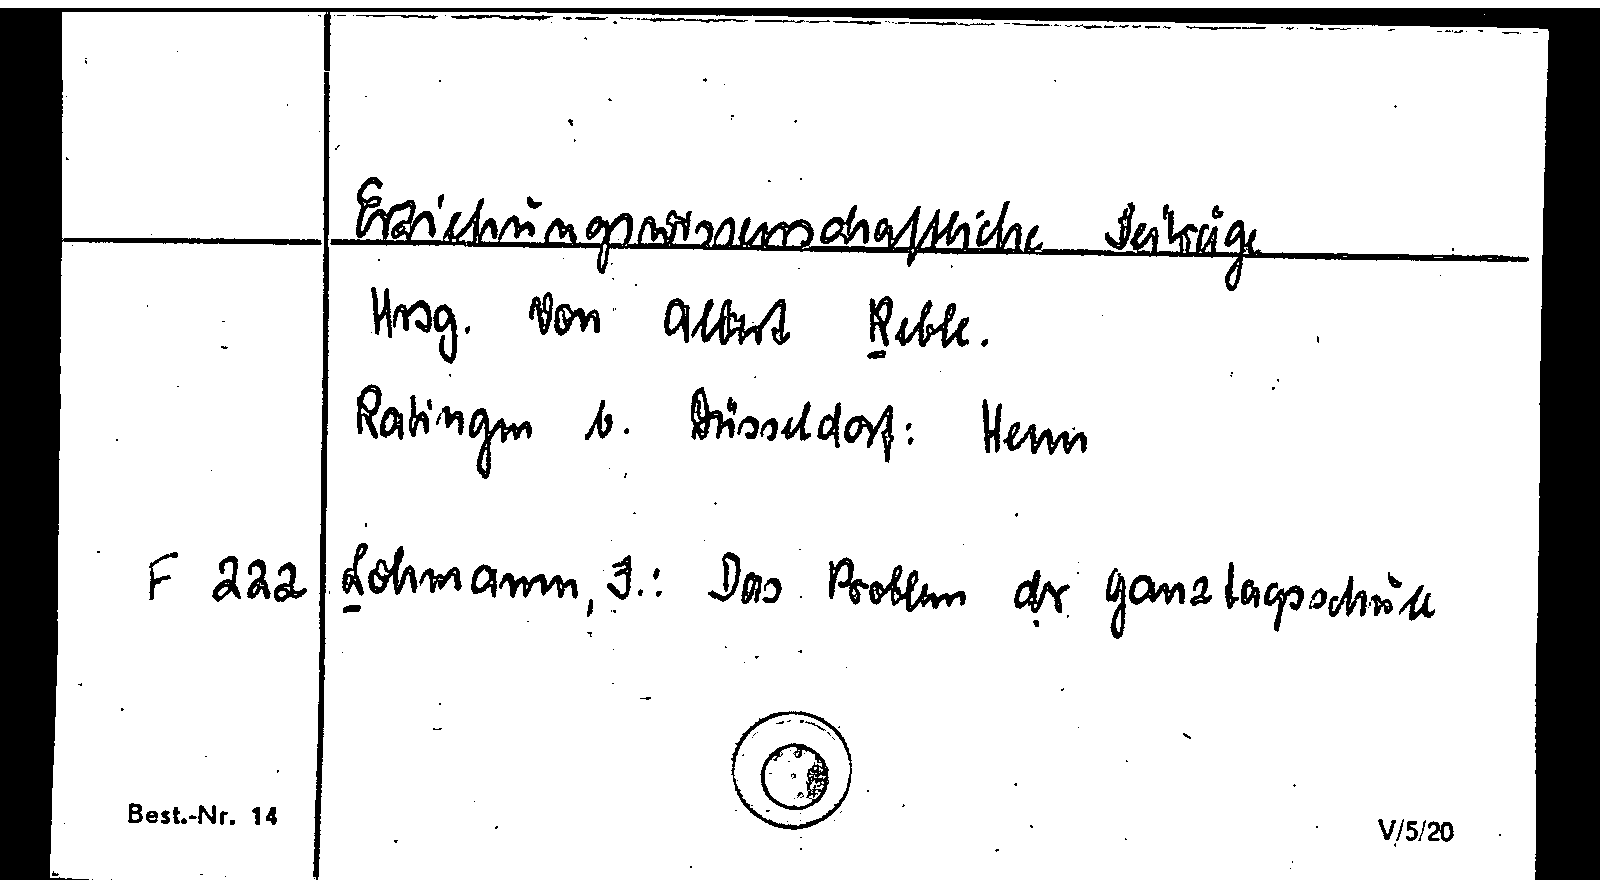 Erziehungswissenschaftliche Beiträge
Hrsg. von Albert Reble.
Ratingen b. Düsseldorf: Henn
F 222 Lohmann, J.: Das Problem der Ganztagsschule
Best.-Nr. 14
V/5/20